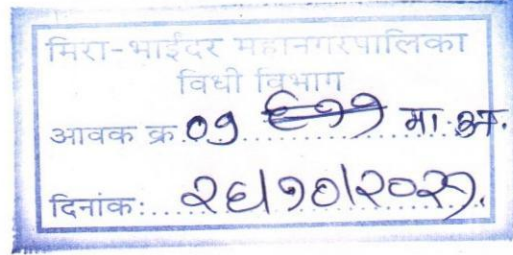 मिरा-भाईंदर महानगरपालिका
विधी विभाग
आवक क्र. ०१ ६११ मा.अ.
दिनांक: २६/१०/२०२१.